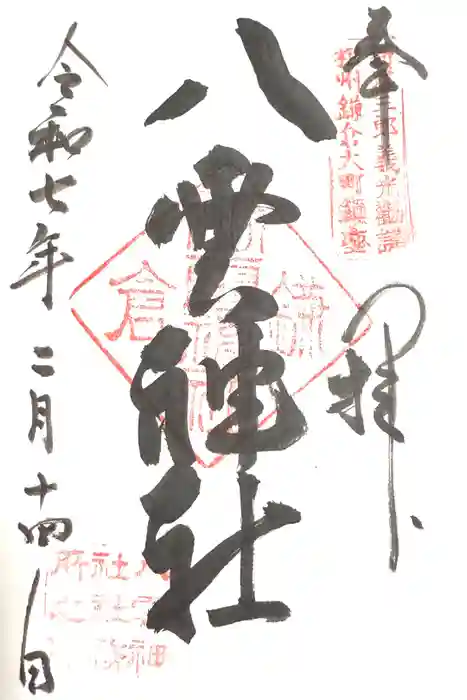 奉拝
新羅三郎義光勧請
相州鎌倉大町鎮座
八雲神社
令和七年二月十四日